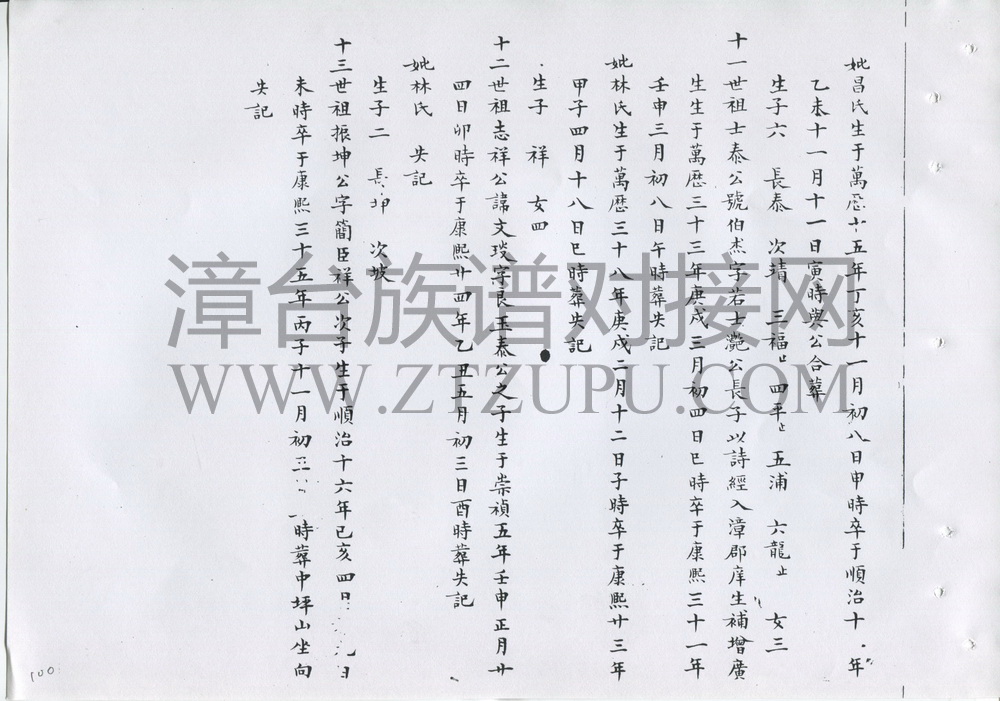 妣昌氏生于萬歷十五年丁亥十一月初八日申時卒于順治十 年
乙未十一月十一日寅時與公合葬
生子六 長泰 次靖 三福止 四平止 五浦 六龍止 女三
十一世祖士泰公號伯杰字若士灔公長子以詩經入漳郡庠生補增廣
生生于萬歷三十三年庚戌三月初四日巳時卒于康熙三十一年
壬申三月初八日午時葬失記
妣林氏生于萬歷三十八年庚戌二月十二日子時卒于康熙廿三年
甲子四月十八日巳時葬失記
生子 祥 女四
十二世祖志祥公諱文琰字良玉泰公之子生于崇禎五年壬申正月廿
四日卯時卒于康熙廿四年乙丑五月初三日酉時葬失記
妣林氏 失記
生子二 長坤 次坡
十三世祖振坤公字簡臣祥公次子生于順治十六年己亥四月 九日
未時卒于康熙三十五年丙子十一月初三 時葬中坪山坐向
失記
100
漳台族谱对接网
WWW.ZTZUPU.COM